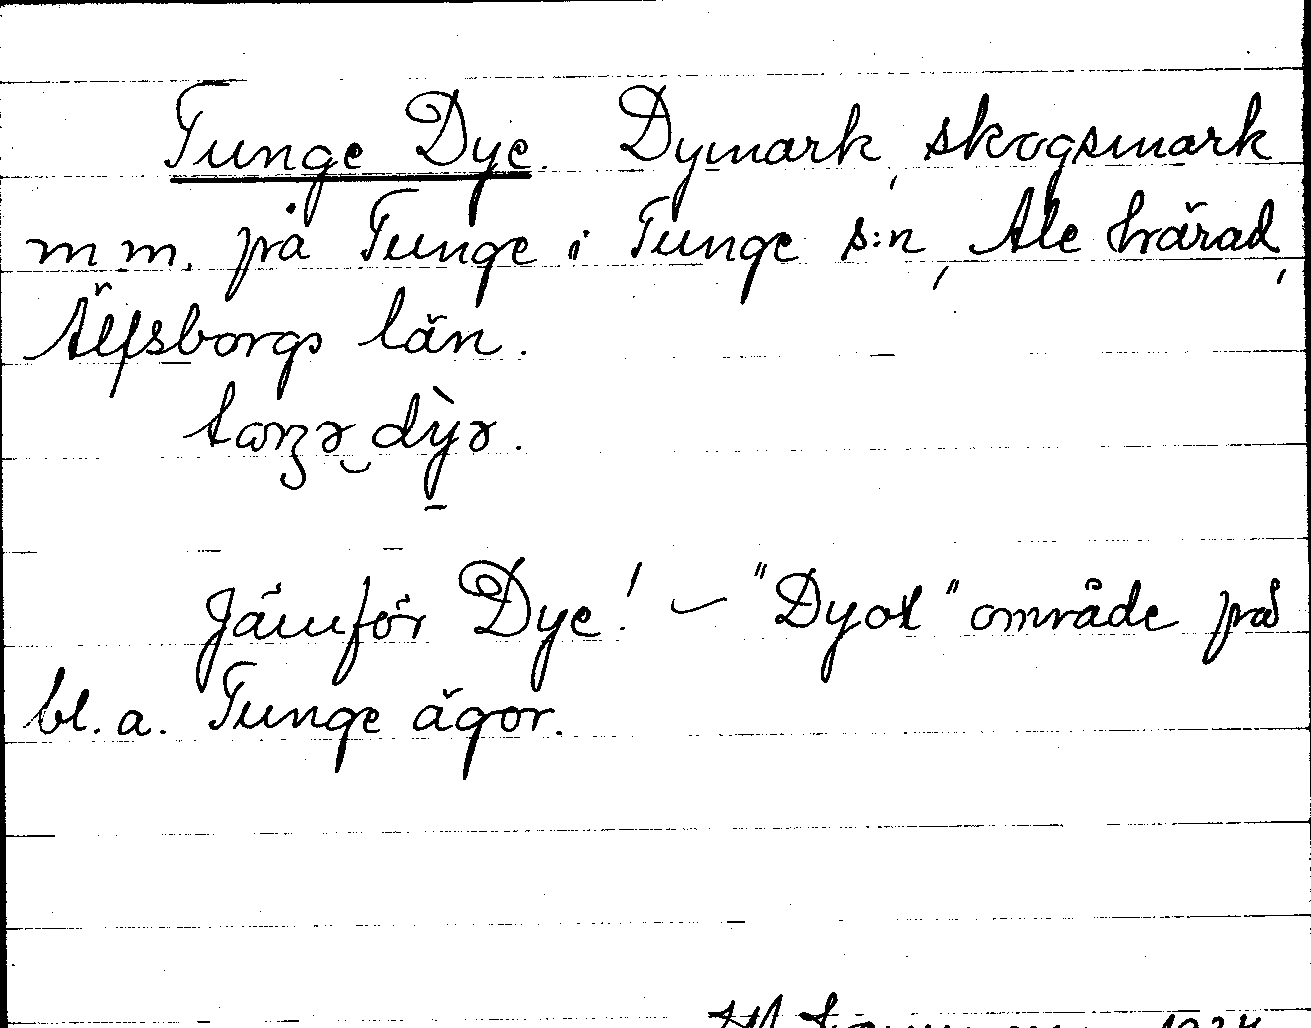 Tunge Dye. Dymark, skogsmark
m.m. på Tunge i Tunge s:n, Ale härad,
Älfsborgs län.
Jämför Dye! — "Dyot" område på
bl. a. Tunge ägor.